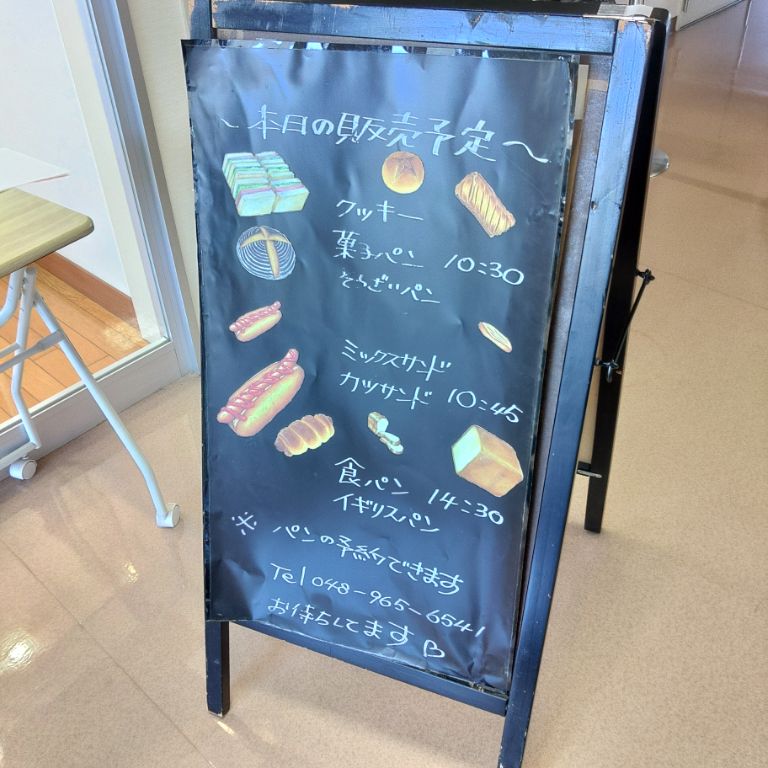 ～本日の販売予定～
クッキー
菓子パン 10:30
そうざいパン
ミックスサンド
カツサンド 10:45
食パン 14:30
イギリスパン
※ パンの予約できます
Tel 048-965-6541
お待ちしてます